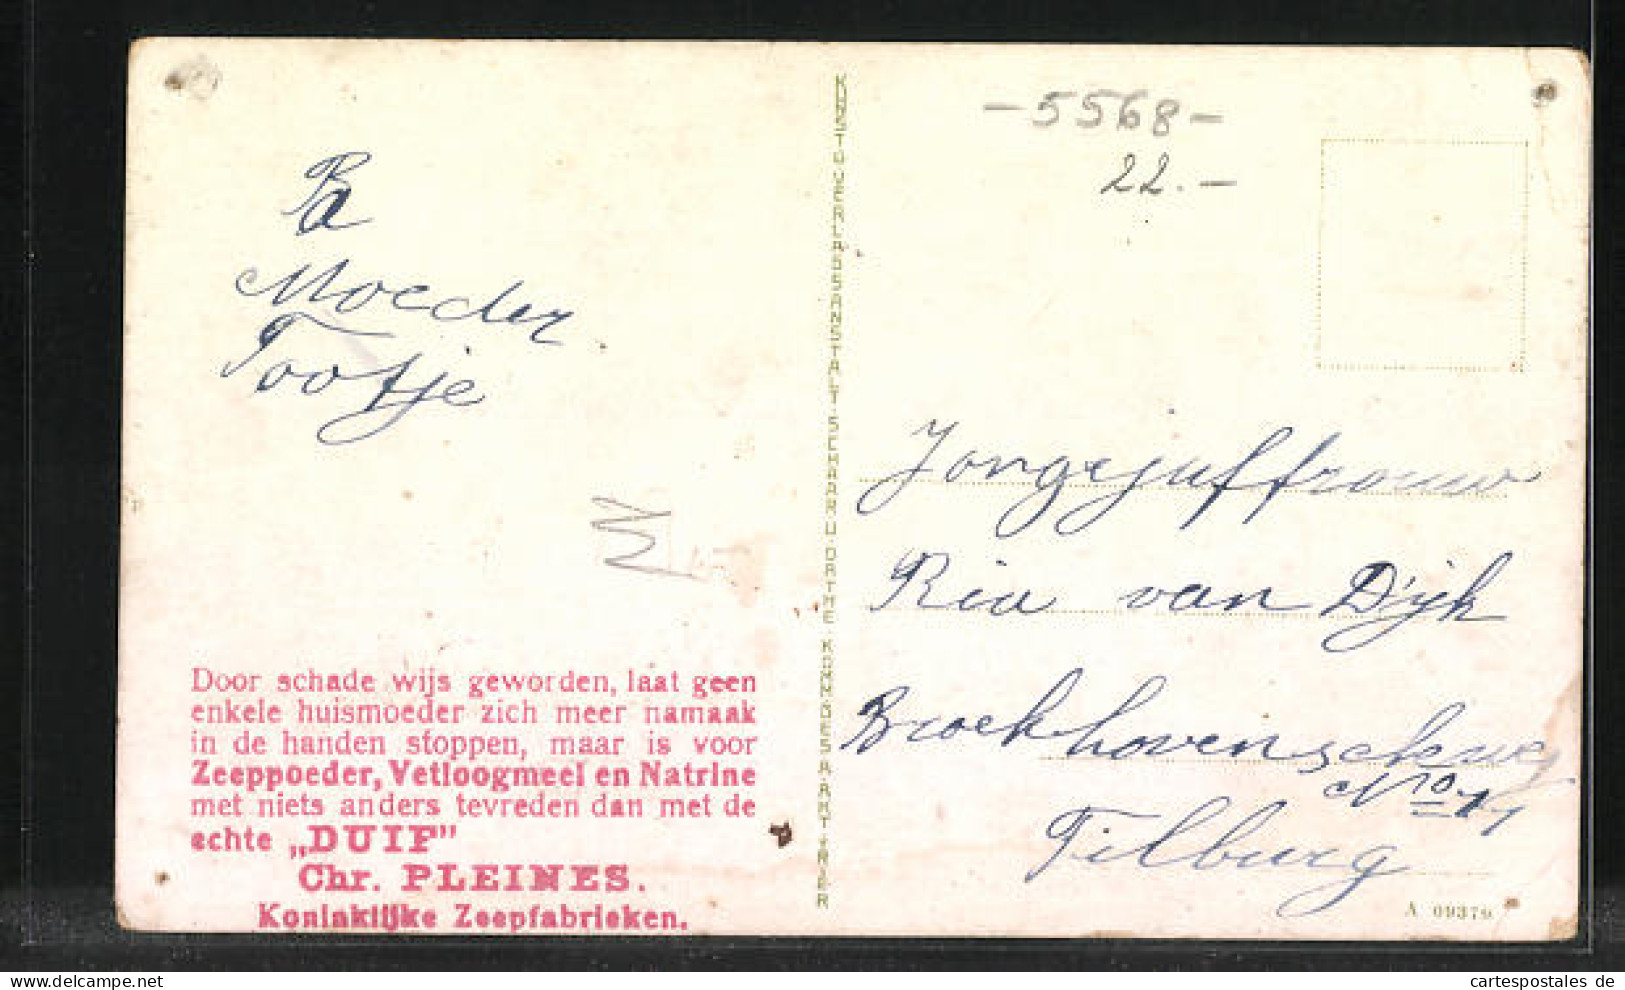 -5568-
22.-
Pa
Moeder
Tootje
Door schade wijs geworden, laat geen
enkele huismoeder zich meer namaak
in de handen stoppen, maar is voor
Zeeppoeder, Vetloogmeel en Natrine
met niets anders tevreden dan met de
echte „DUIF"
Chr. PLEINES.
Koninklijke Zeepfabrieken.
KUNST U VERLAGSANSTALT SCHAAR U DATHE KOMM.GES.A.AKT TRIER
Jongejuffrouw
Ria van Dijk
Broekhovenscheweg
No 11
Tilburg
A 09379
cartespostales de